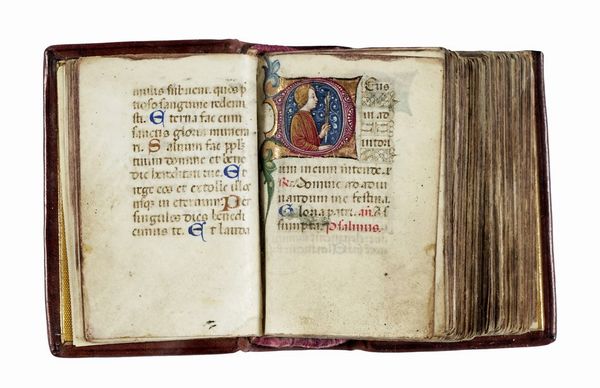 mulis subveni. quos p
tioso sanguine redemi
sti. Eterna fac cum
sanctis gloria munera
ri. Salvum fac pplm
tuum domine et bene
dic hereditati tue. Et
rege eos et extolle illos
usq in eternum. Per
singulos dies benedi
cimus te. Et lauda
Deus
in ad
iutori
um meum intende. R.
Domine ad adiu
vandum me festina.
Gloria patri. an. As
sumpta. Psalmus.